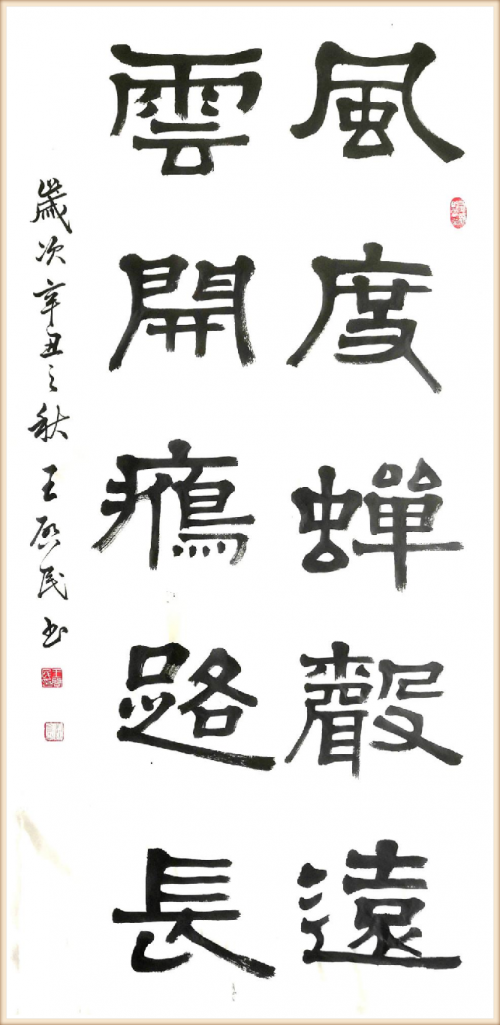 風度蟬聲遠
雲開鴈路長
歲次辛丑之秋 王启民书